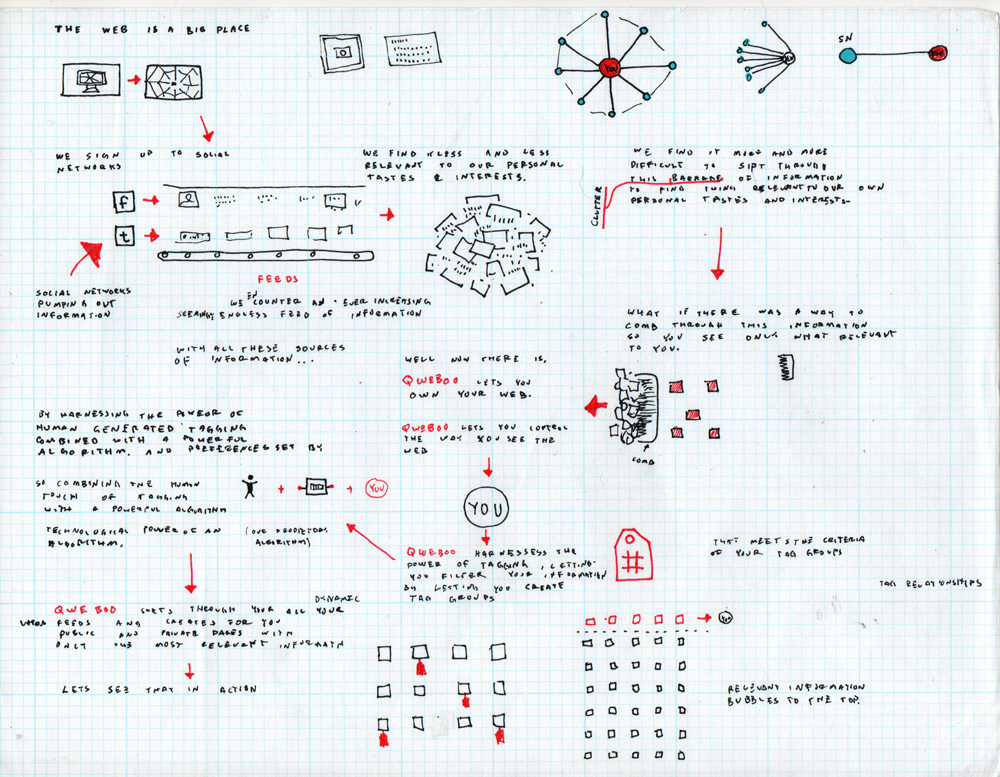 THE WEB IS A BIG PLACE
YOU
YOU
SN
YOU
WE SIGN UP TO SOCIAL
NETWORKS
f
t
SOCIAL NETWORKS
PUMPING OUT
INFORMATION
FEEDS
WE ENCOUNTER AN EVER INCREASING
ENDLESS FEED OF INFORMATION
WITH ALL THESE SOURCES
OF INFORMATION...
WE FIND LESS AND LESS
RELEVANT TO OUR PERSONAL
TASTES & INTERESTS.
WE FIND IT MORE AND MORE
DIFFICULT TO SIFT THROUGH
THIS BARRAGE OF INFORMATION
TO FIND THING RELEVANT TO OUR OWN
PERSONAL TASTES AND INTERESTS.
CLUTTER
WHAT IF THERE WAS A WAY TO
COMB THROUGH THIS INFORMATION
SO YOU SEE ONLY WHAT RELEVANT
TO YOU.
COMB
WELL NOW THERE IS,
QWEBOO LETS YOU
OWN YOUR WEB.
QWEBOO LETS YOU CONTROL
THE WAY YOU SEE THE
WEB
YOU
BY HARNESSING THE POWER OF
HUMAN GENERATED TAGGING
COMBINED WITH A POWERFUL
ALGORITHM. AND PREFERENCES SET BY
YOU
SO COMBINING THE HUMAN
TOUCH OF TAGGING
WITH A POWERFUL ALGORITHM
TECHNOLOGICAL POWER OF AN
ALGORITHM.
(OUR
ALGORITHM)
QWEBOO HARNESSESS THE
POWER OF TAGGING, LETTING
YOU FILTER YOUR INFORMATION
BY LETTING YOU CREATE
DYNAMIC TAG GROUPS
#
THAT MEETS THE CRITERIA
OF YOUR TAG GROUPS
TAG RELATIONSHIPS
QWEBOO SORTS THROUGH YOUR ALL YOUR
FEEDS AND CREATES FOR YOU
PUBLIC AND PRIVATE PAGES WITH
ONLY THE MOST RELEVANT INFORMATN
LETS SEE THAT IN ACTION
YOU
RELEVANT INFORMATION
BUBBLES TO THE TOP.